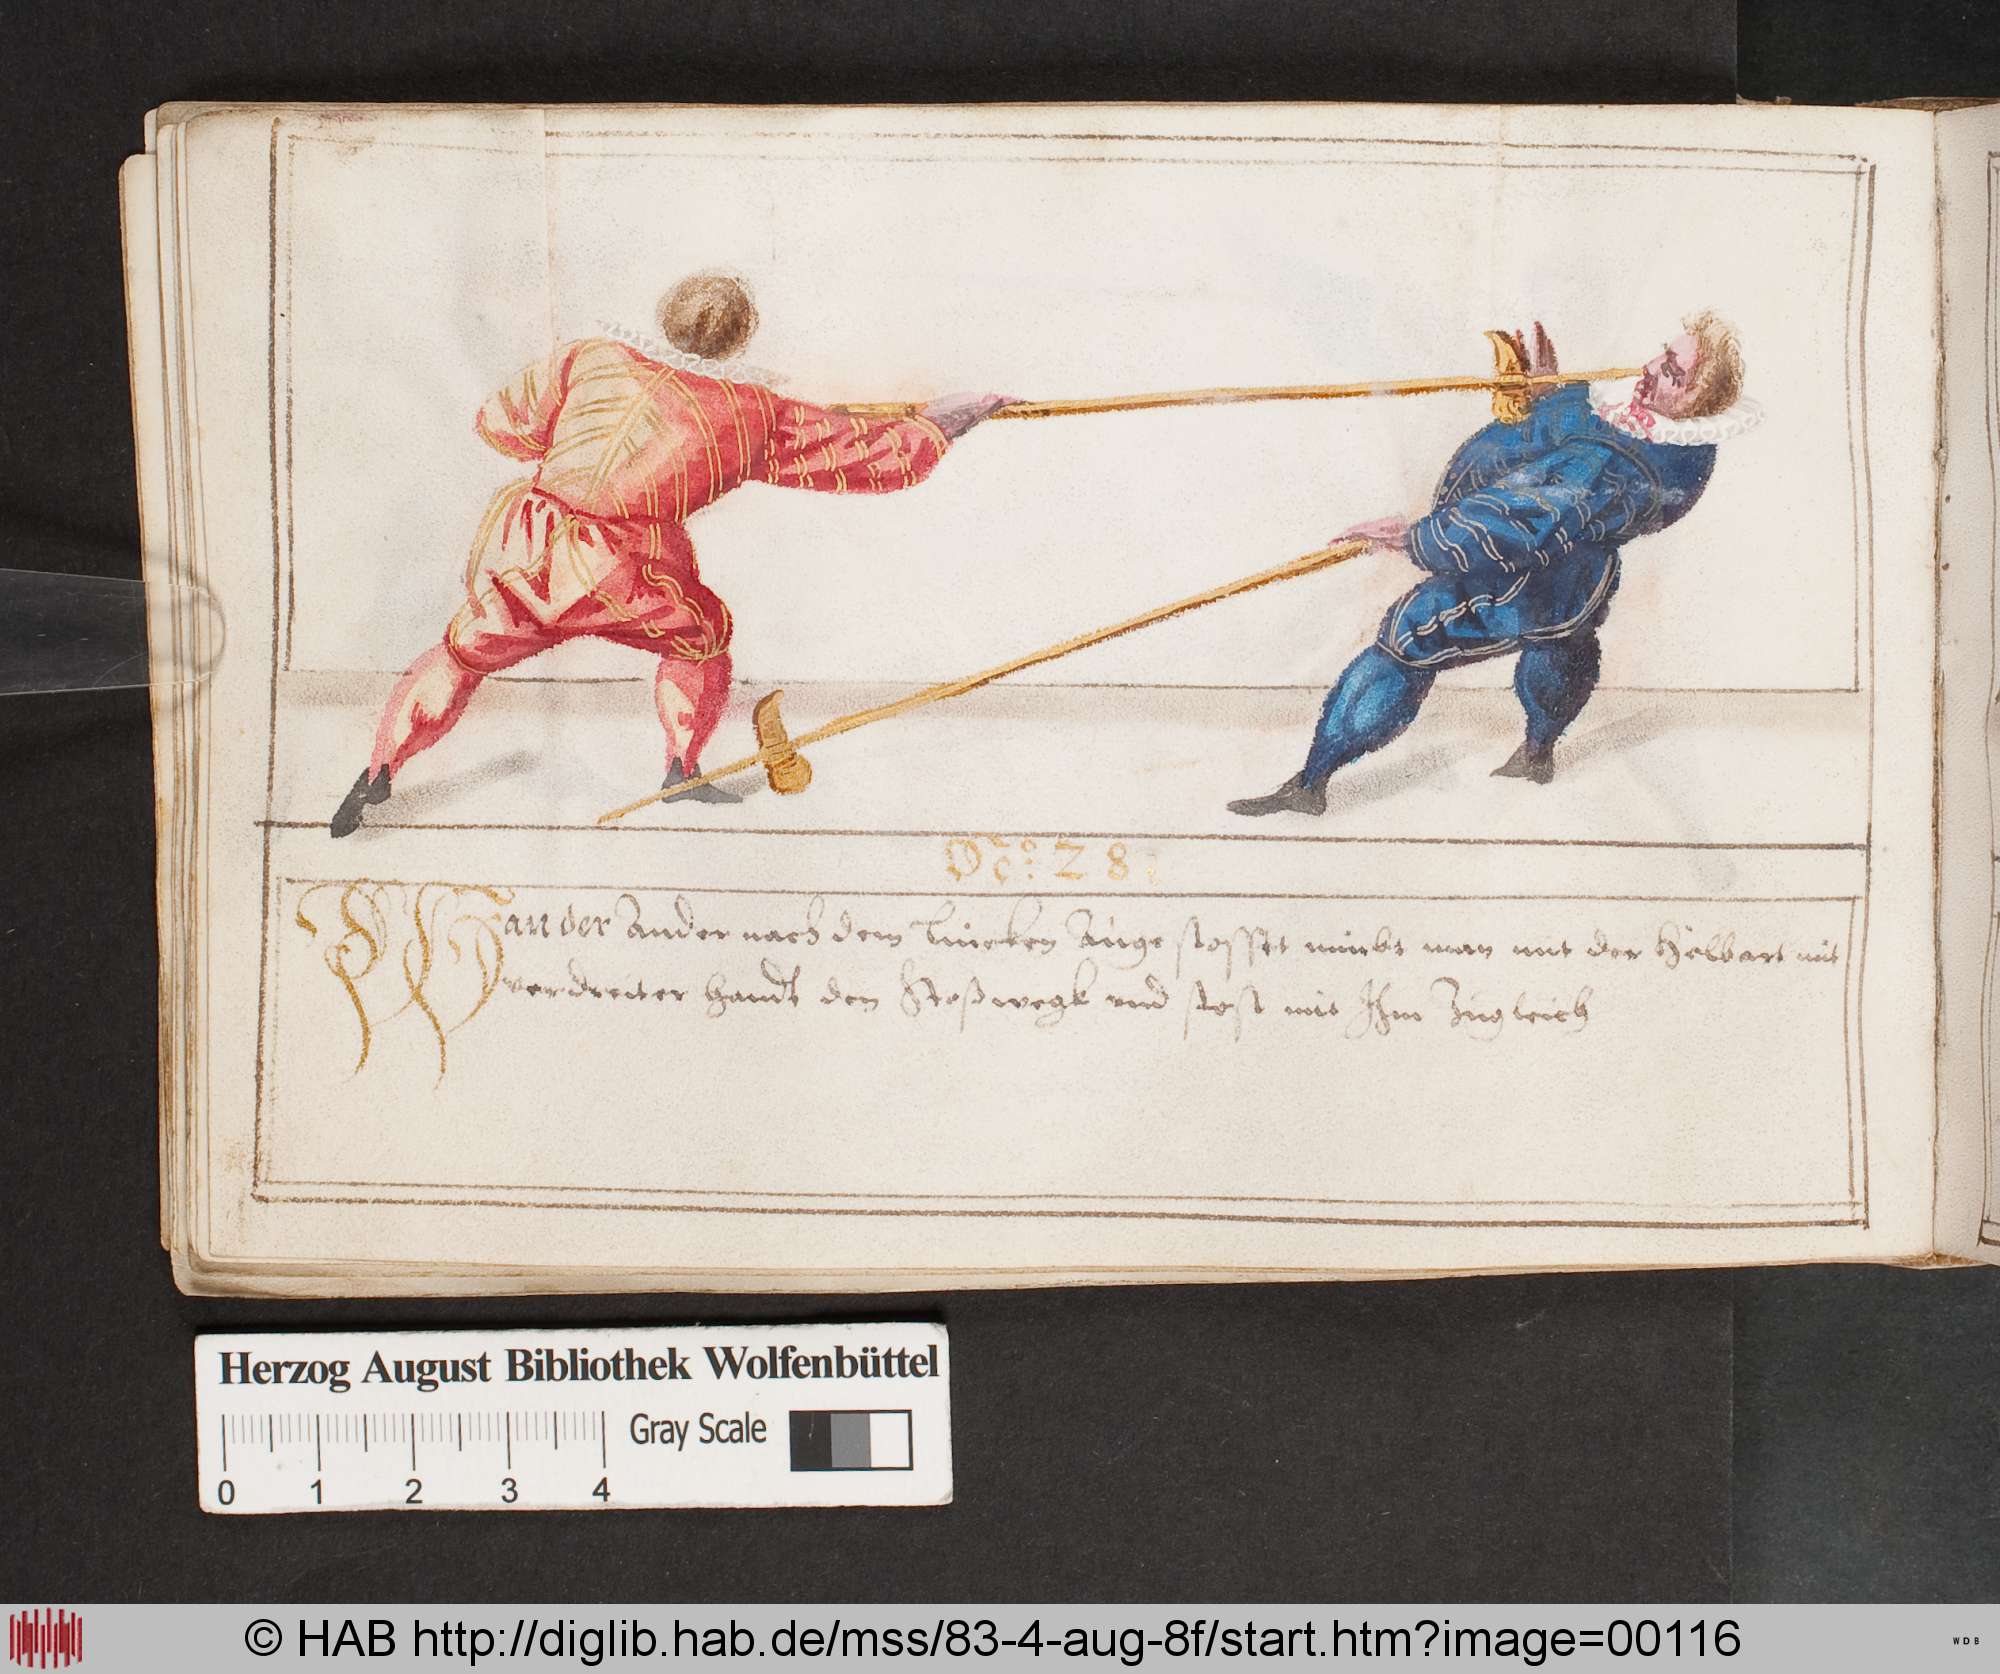 No: 28.
Wan der Ander nach dem Lincken Auge stosset nimbt man mit der Helbart mit
verdreiter handt den Stoß wegk vnd stost mit Ihm Zugleich
Herzog August Bibliothek Wolfenbüttel
Gray Scale
0 1 2 3 4
© HAB http://diglib.hab.de/mss/83-4-aug-8f/start.htm?image=00116
WDB